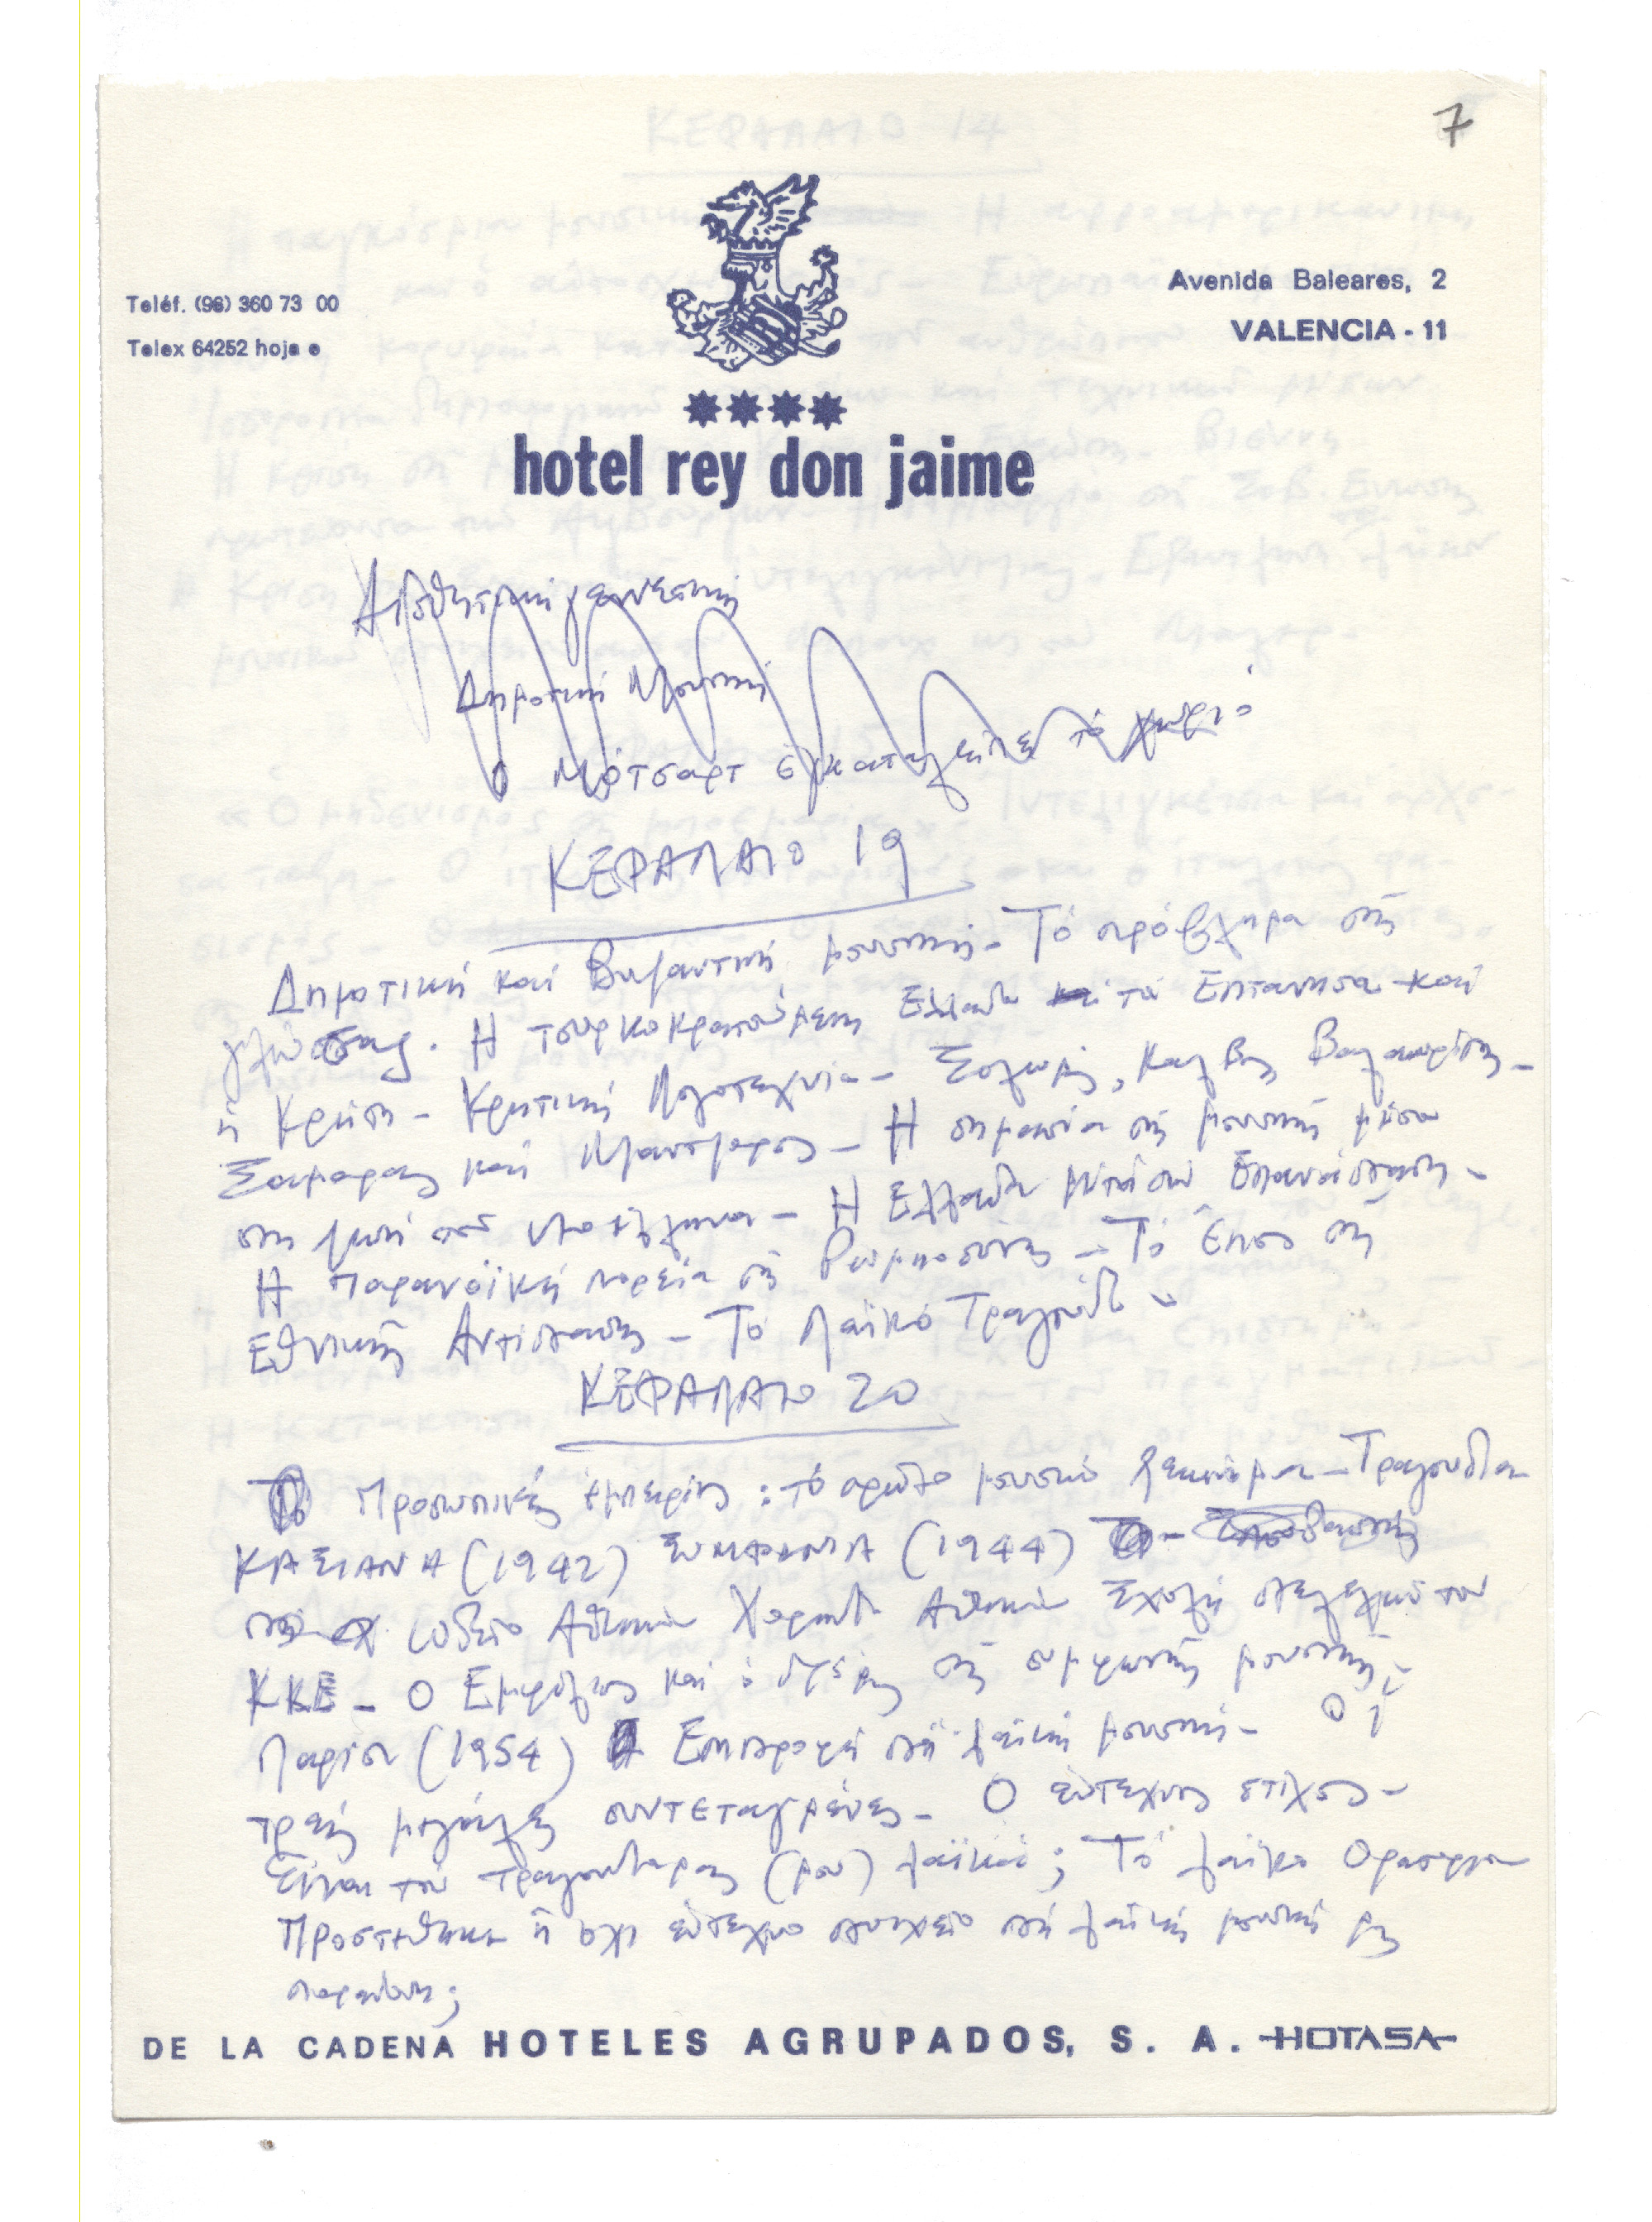 7
Teléf. (96) 360 73 00
Telex 64252 hoja e
Avenida Baleares, 2
VALENCIA - 11
hotel rey don jaime
Δημοτική Μουσική
Ο Μότσαρτ εγκαταλείπει το χωριό
ΚΕΦΑΛΑΙΟ 19
Δημοτική και Βυζαντινή μουσική - Τό πρόβλημα της
γλώσσας. Η τουρκοκρατούμενη Ελλάδα τα Επτάνησα και
η Κρήτη - Κρητική Λογοτεχνία - Σολωμός, Κάλβος, Βαλαωρίτης -
Σαμάρας και Μάντζαρος - Η σημασία της μουσικής μέσα
στη ζωή του νεοέλληνα - Η Ελλάδα μετά την Επανάσταση -
Η παρανοϊκή πορεία της Ρωμηοσύνης - Τό Έπος της
Εθνικής Αντίστασης - Τό Λαϊκό Τραγούδι -
ΚΕΦΑΛΑΙΟ 20
Προσωπικές εμπειρίες : τό πρώτο μουσικό ξεκίνημα - Τραγούδια
ΚΑΣΙΑΝΗ (1942) ΣΥΜΦΩΝΙΑ (1944)
Ωδείο Αθηνών Χορωδία Αθηνών Σχολή στελεχών του
ΚΚΕ - Ο Εμφύλιος και ο δρόμος της συμφωνικής μουσικής -
Παρίσι (1954) Επιστροφή στη λαϊκή μουσική - Οι
τρεις μεγάλες συντεταγμένες - Ο έντεχνος στίχος -
Είναι τα τραγούδια μας (μου) λαϊκά; Τό λαϊκό Ορατόριο
Προστέθηκε ή όχι έντεχνο στοιχείο στη λαϊκή μουσική μας
παράδοση;
DE LA CADENA HOTELES AGRUPADOS, S. A. HOTASA